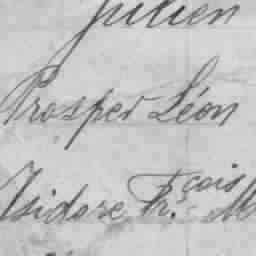 Julien
Prosper Léon
Isidore Fr.çois M